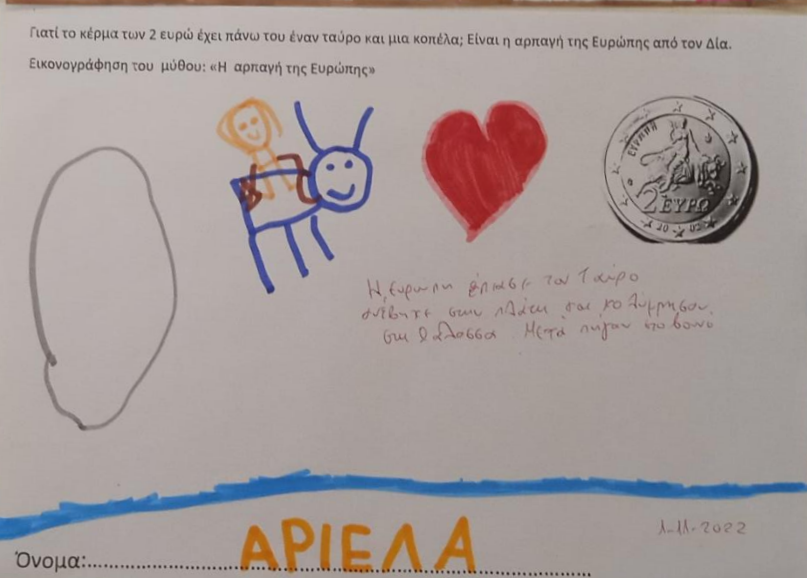 Γιατί το κέρμα των 2 ευρώ έχει πάνω του έναν ταύρο και μια κοπέλα; Είναι η αρπαγή της Ευρώπης από τον Δία.
Εικονογράφηση του μύθου: «Η αρπαγή της Ευρώπης»
ΕΥΡΩΠΗ
2 ΕΥΡΩ
20 02
Η Ευρώπη έπιασε τον Ταύρο
ανέβηκε στην πλάτη και κολύμπησαν
στη θάλασσα Μετά πήγαν στο βουνό
1-11-2022
Όνομα: ΑΡΙΕΛΑ